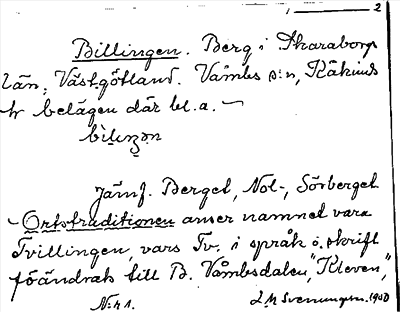 1 — 2
Billingen. Berg i Skaraborgs
län, Västgötland. Våmbs s:n, Kåkinds
hr belägen där bl. a. —
bìlıŋən
Jämf. Berget, Nol-, Sörberget
- Ortstraditionen anser namnet vara
Tvillingen, vars Tv. i språk o. skrift
förändrats till B. Våmbsdalen, "Kleven",
N:r 1. L. M. Svenungsson. 1930